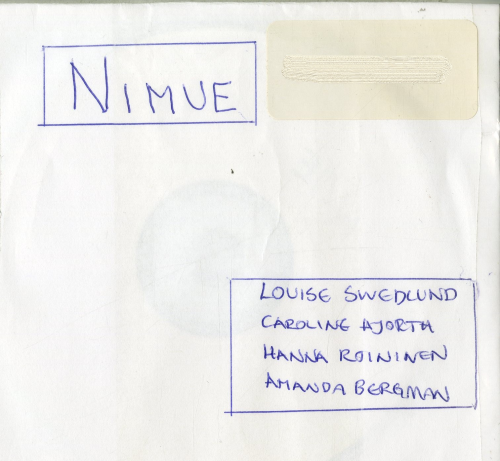 NIMUE
LOUISE SWEDLUND
CAROLINE HJORTH
HANNA ROININEN
AMANDA BERGMAN